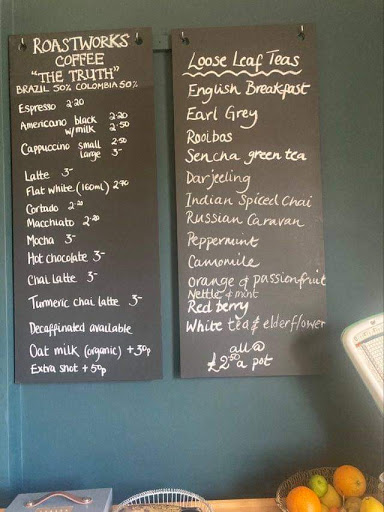 ROASTWORKS
COFFEE
"THE TRUTH"
BRAZIL 50% COLOMBIA 50%
Espresso 2·20
Americano black 2·20
w/milk 2·50
Cappuccino small 2·50
large 3-
Latte 3-
Flat white (160ml) 2·70
Cortado 2·20
Macchiato 2·20
Mocha 3-
Hot chocolate 3-
Chai Latte 3-
Turmeric chai latte 3-
Decaffinated available
Oat milk (organic) +30p
Extra shot +50p
Loose Leaf Teas
English Breakfast
Earl Grey
Rooibas
Sencha green tea
Darjeeling
Indian Spiced Chai
Russian Caravan
Peppermint
Camomile
Orange & passionfruit
Nettle & mint
Red berry
White tea & elderflower
all @
£2·50 a pot